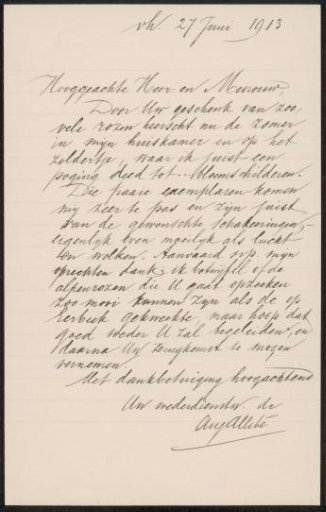 v.h. 27 Juni 1913
Hooggeachte Heer en Mevrouw,
Door Uw geschenk van zoo-
vele rozen heerscht nu de zomer
in mijn huiskamer en op het
zoldertje, waar ik juist een
poging deed tot - bloemschilderen.
Die fraaie exemplaren komen
mij zeer te pas en zijn juist
van de gewenschte schakeeringen,-
eigenlijk even moeilijk als lucht
en wolken. Aanvaard s.v.p. mijn
oprechten dank; ik betwijfel of de
alpenrozen die U gaat opzoeken
zoo mooi kunnen zijn als de op
Eerbeek gekweekte, maar hoop dat
goed weder U zal begeleiden, en
daarna Uw terugkomst te mogen
vernemen.
Met dankbetuiging hoogachtend
Uw wederdienstw. dr
Aug Allebé